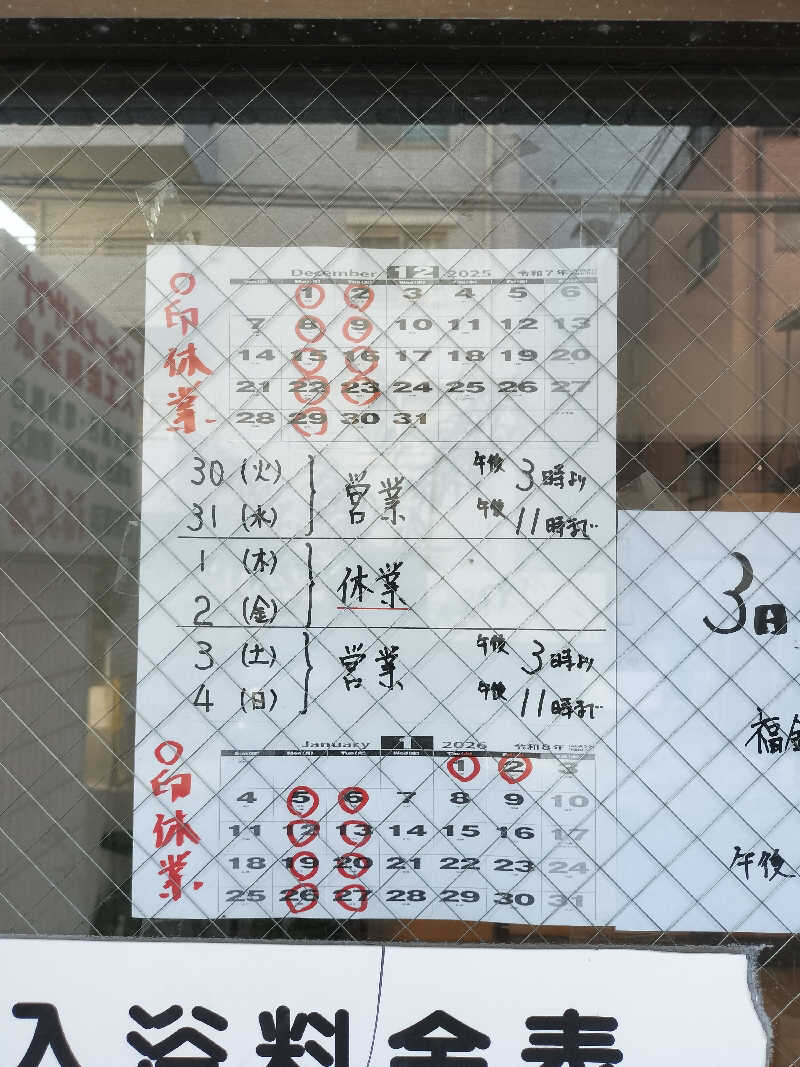 December 12 2025 令和7年
○印休業
1 2 3 4 5 6
7 8 9 10 11 12 13
14 15 16 17 18 19 20
21 22 23 24 25 26 27
28 29 30 31
30 (火) 営業 午後 3時より
31 (水) 午後 11時まで
1 (木) 休業
2 (金)
3 (土) 営業 午後 3時より
4 (日) 午後 11時まで
January 1 2026 令和8年
○印休業
1 2 3
4 5 6 7 8 9 10
11 12 13 14 15 16 17
18 19 20 21 22 23 24
25 26 27 28 29 30 31
3日
福
午後
入浴料金表